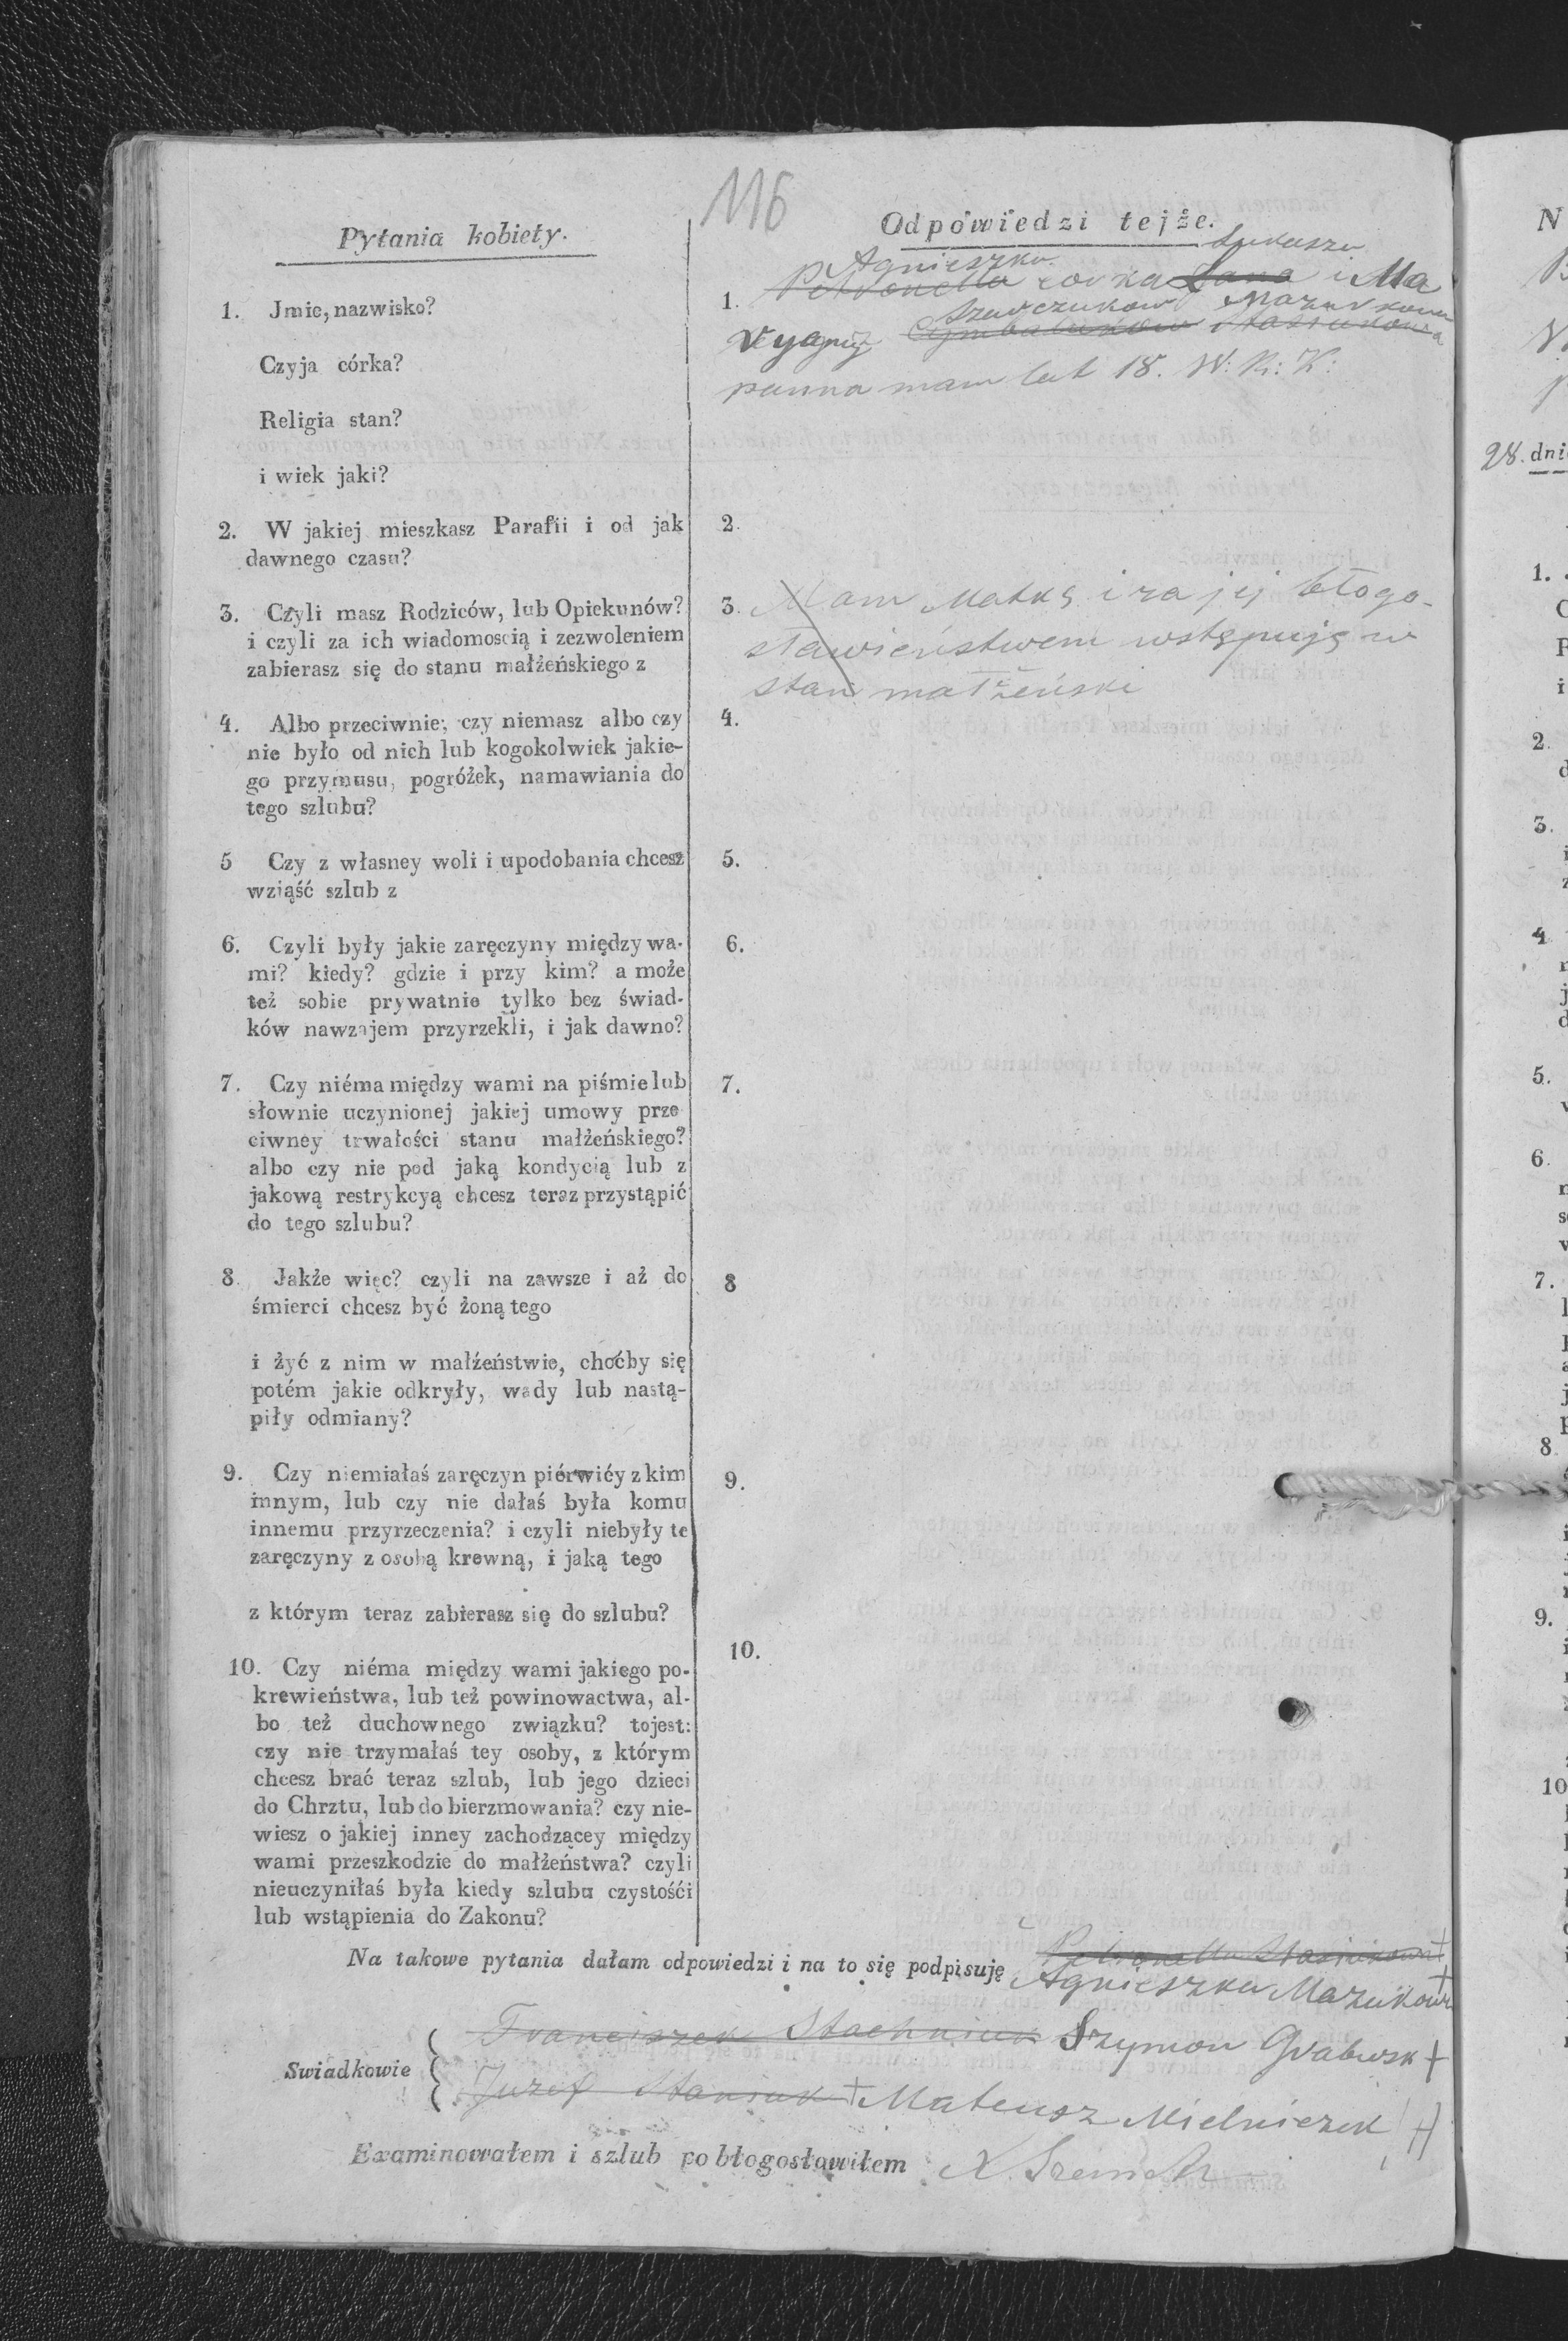 116
Pytania kobiety.
Odpowiedzi tejże.
1. Jmie, nazwisko?
Czyja córka?
Religia stan?
i wiek jaki?
2. W jakiej mieszkasz Parafii i od jak
dawnego czasu?
3. Czyli masz Rodziców, lub Opiekunów?
i czyli za ich wiadomoscią i zezwoleniem
zabierasz się do stanu małżeńskiego z
4. Albo przeciwnie; czy niemasz albo czy
nie było od nich lub kogokolwiek jakie-
go przymusu, pogróżek, namawiania do
tego szlubu?
5 Czy z własney woli i upodobania chcesz
wziąść szlub z
6. Czyli były jakie zaręczyny między wa-
mi? kiedy? gdzie i przy kim? a może
też sobie prywatnie tylko bez świad-
ków nawzajem przyrzekli, i jak dawno?
7. Czy niéma między wami na piśmie lub
słownie uczynionej jakiej umowy prze
ciwney trwałości stanu małżeńskiego?
albo czy nie pod jaką kondycią lub z
jakową restrykcyą chcesz teraz przystąpić
do tego szlubu?
8. Jakże więc? czyli na zawsze i aż do
śmierci chcesz być żoną tego
i żyć z nim w małżeństwie, choćby się
potém jakie odkryły, wady lub nastą-
piły odmiany?
9. Czy niemiałaś zaręczyn piérwiéy z kim
innym, lub czy nie dałaś była komu
innemu przyrzeczenia? i czyli niebyły te
zaręczyny z osobą krewną, i jaką tego
z którym teraz zabierasz się do szlubu?
10. Czy niéma między wami jakiego po-
krewieństwa, lub też powinowactwa, al-
bo też duchownego związku? tojest:
czy nie trzymałaś tey osoby, z którym
chcesz brać teraz szlub, lub jego dzieci
do Chrztu, lub do bierzmowania? czy nie-
wiesz o jakiej inney zachodzącey między
wami przeszkodzie do małżeństwa? czyli
nieuczyniłaś była kiedy szlubu czystośći
lub wstąpienia do Zakonu?
Agnieszka Łukasza
1. Petronella corka Jana i Ma
Szewczukow Mazurkowna
ryanny
panna mam lat 18. W: R: K:
2.
3. Mam Matkę i za jej błogo-
sławieństwem wstępuję w
stan małżeński
4.
5.
6.
7.
8
9.
10.
Petronella Stasiukowna +
Na takowe pytania dałam odpowiedzi i na to się podpisuję Agnieszka +
Franciszek Stachniuk Szymon +
Swiadkowie
Juzef Stasiuk + Mateusz Mielniczek
Examinowałem i szlub pobłogosławiłem X.
N
28. dni
1.
2.
3.
4
5.
6.
7.
8
9.
10